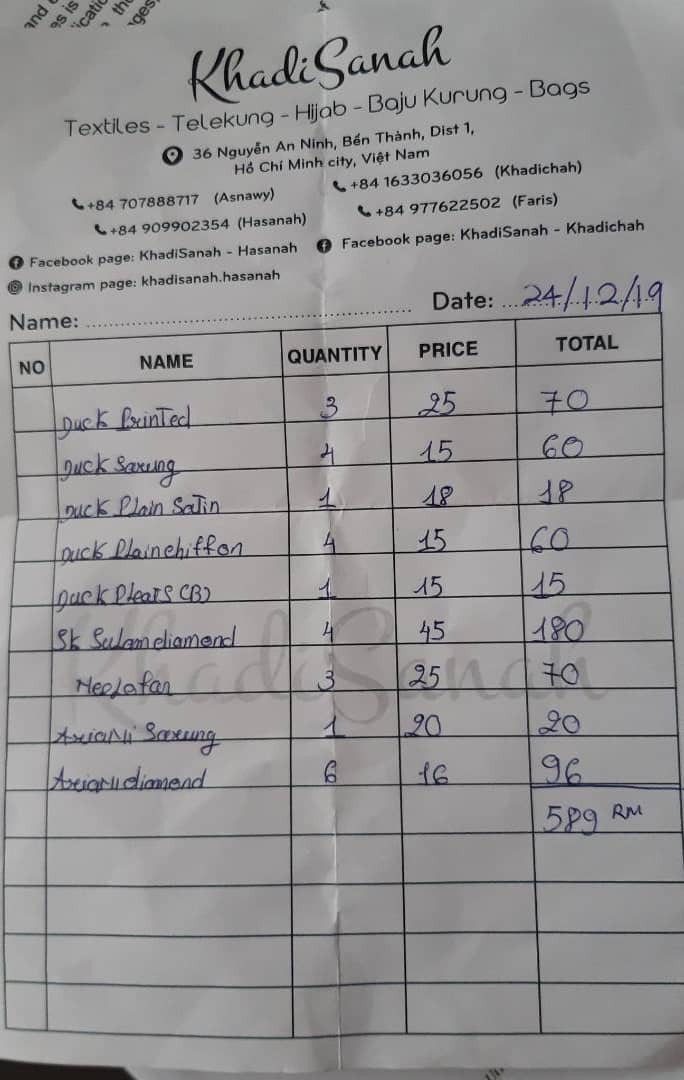 KhadiSanah
Textiles - Telekung - Hijab - Baju Kurung - Bags
36 Nguyễn An Ninh, Bến Thành, Dist 1,
Hồ Chí Minh city, Việt Nam
+84 707888717 (Asnawy) +84 1633036056 (Khadichah)
+84 909902354 (Hasanah) +84 977622502 (Faris)
Facebook page: KhadiSanah - Hasanah Facebook page: KhadiSanah - Khadichah
Instagram page: khadisanah.hasanah
Name: Date: 24/12/19
NO NAME QUANTITY PRICE TOTAL
Duck Printed 3 25 70
Duck Sarung 4 15 60
Duck Plain Satin 1 18 18
Duck Plainchiffon 4 15 60
Duck Pleats (B) 1 15 15
Sk Sulamdiamond 4 45 180
Neelofar 3 25 70
Sarung 1 20 20
diamond 6 16 96
589 RM
KhadiSanah